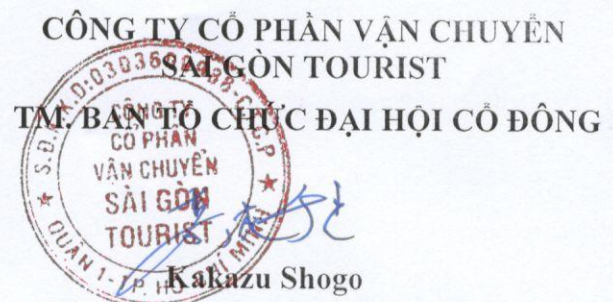 CÔNG TY CỔ PHẦN VẬN CHUYỂN
SÀI GÒN TOURIST
TM. BAN TỔ CHỨC ĐẠI HỘI CỔ ĐÔNG
CÔNG TY
CỔ PHẦN
VẬN CHUYỂN
SÀI GÒN
TOURIST
QUẬN 1 - TP. HỒ CHÍ MINH
Kakazu Shogo